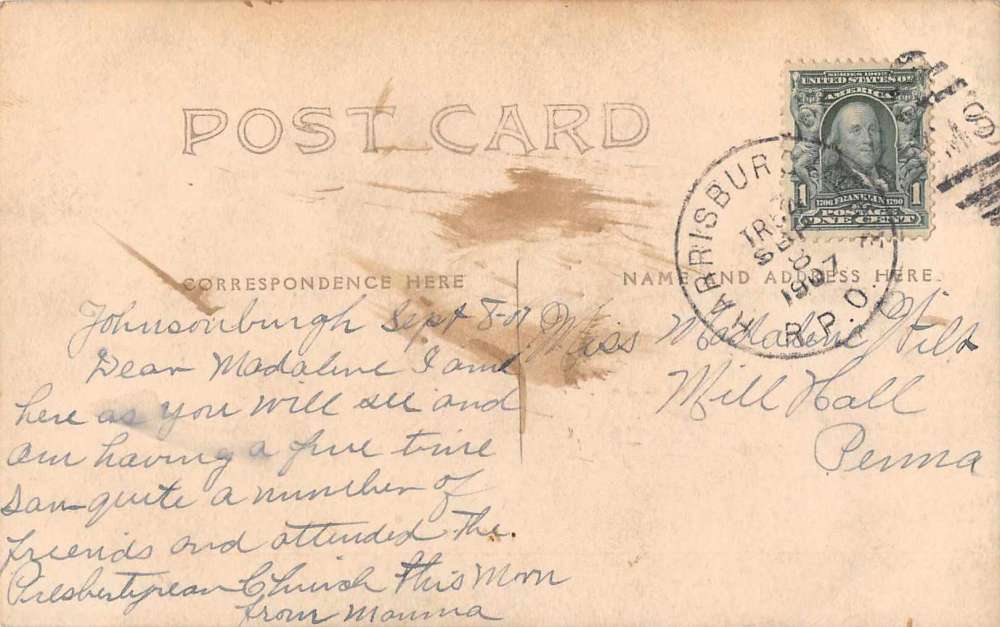 POST CARD
SERIES 1902
UNITED STATES OF
AMERICA
1 1
1706 FRANKLIN 1790
POSTAGE
ONE CENT
HARRISBUR
R.P.O.
1907
CORRESPONDENCE HERE
NAME AND ADDRESS HERE.
Johnsonburgh Sept 8-07
Dear Madaline I am
here as you will see and
am having a fine time
saw quite a number of
friends and attended the.
Presbertyrean Church this Morn
from Mamma
Miss Madaline
Mill Hall
Penna